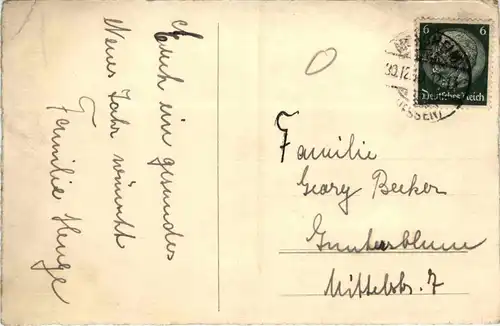 Euch ein gesundes
Neues Jahr wünscht
Familie Henge
6 6
Deutsches Reich
30.12.
(HESSEN)
Familie
Georg Becker
Guntersblum
Mittelstr. 7